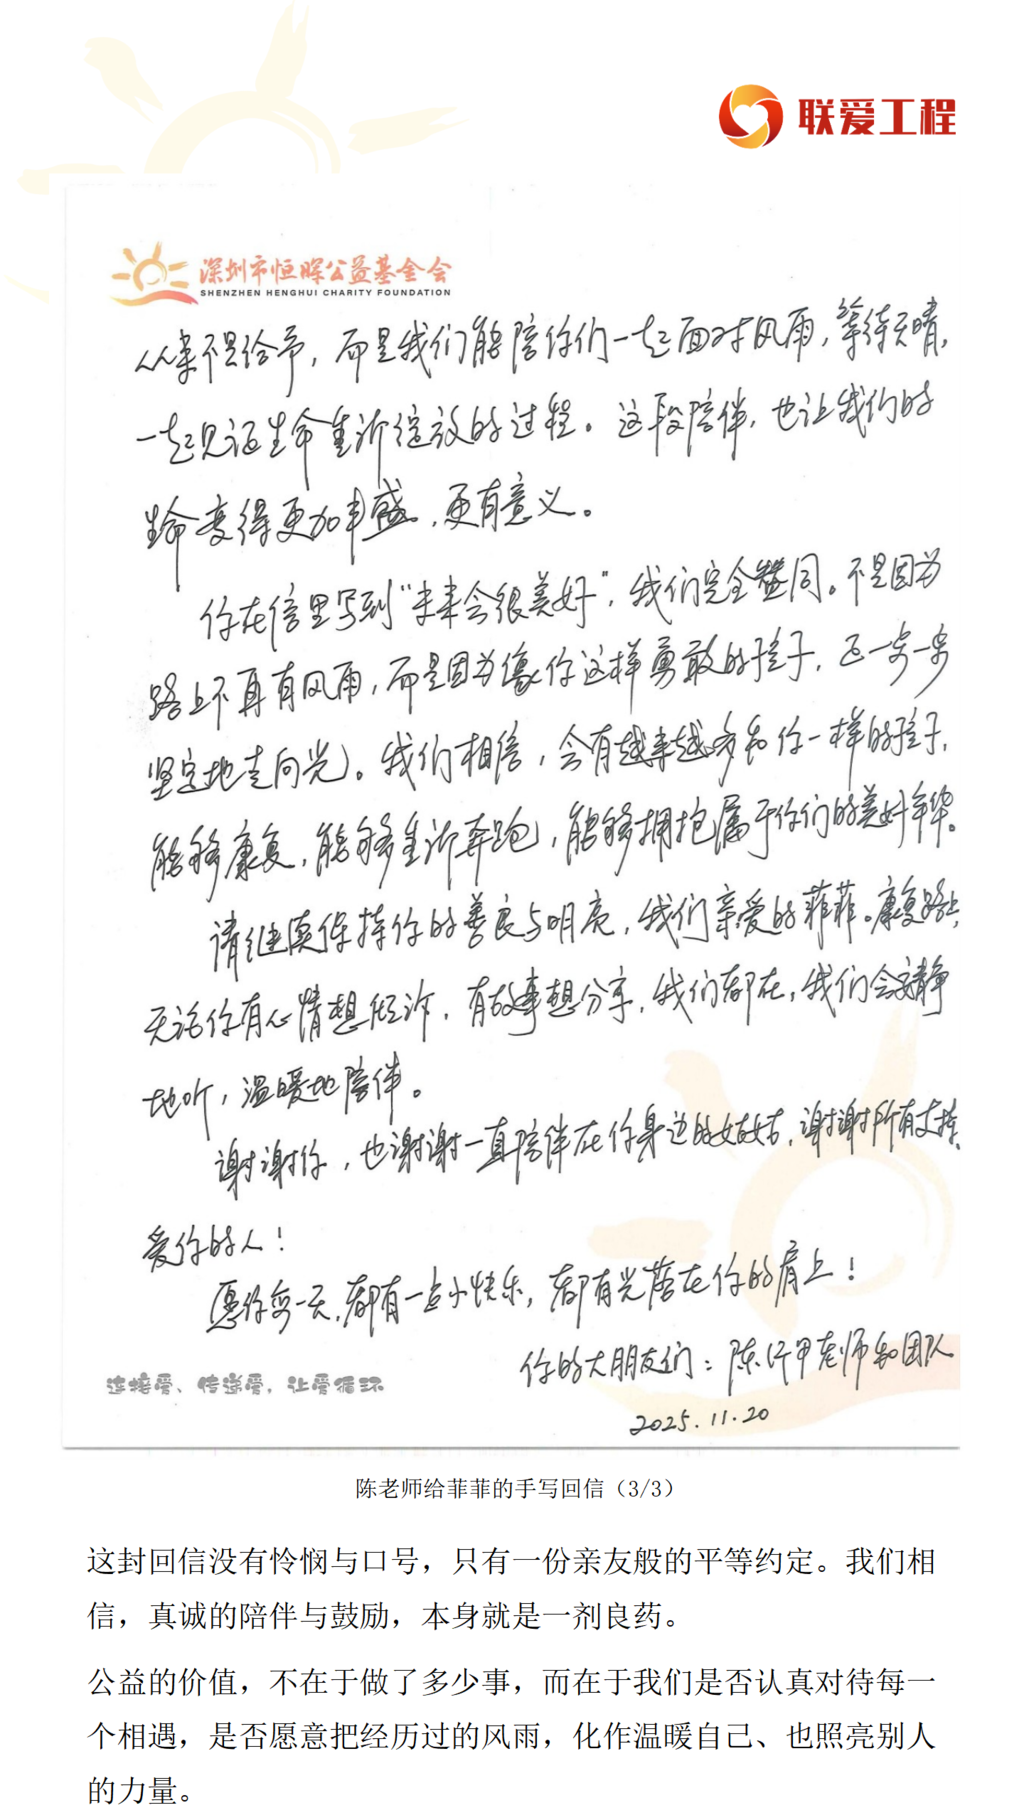 联爱工程
深圳市恒晖公益基金会
SHENZHEN HENGHUI CHARITY FOUNDATION
从来不是给予，而是我们能陪你们一起面对风雨，等待天晴，
一起见证生命重新绽放的过程。这段陪伴，也让我们的
生命变得更加丰盛，更有意义。
你在信里写到“未来会很美好”，我们完全赞同。不是因为
路上不再有风雨，而是因为像你这样勇敢的孩子，正一步一步
坚定地走向光。我们相信，会有越来越多和你一样的孩子，
能够康复，能够重新奔跑，能够拥抱属于你们的美好年华。
请继续保持你的善良与明亮，我们亲爱的菲菲。康复路上，
无论你有心情想倾诉，有故事想分享，我们都在，我们会安静
地听，温暖地陪伴。
谢谢你，也谢谢一直陪伴在你身边的姑姑，谢谢所有支持、
爱你的人！
愿你每一天，都有一点小快乐，都有光落在你的肩上！
你的大朋友们：陈行甲老师和团队
连接爱、传递爱，让爱循环
2025.11.20
陈老师给菲菲的手写回信（3/3）
这封回信没有怜悯与口号，只有一份亲友般的平等约定。我们相
信，真诚的陪伴与鼓励，本身就是一剂良药。
公益的价值，不在于做了多少事，而在于我们是否认真对待每一
个相遇，是否愿意把经历过的风雨，化作温暖自己、也照亮别人
的力量。